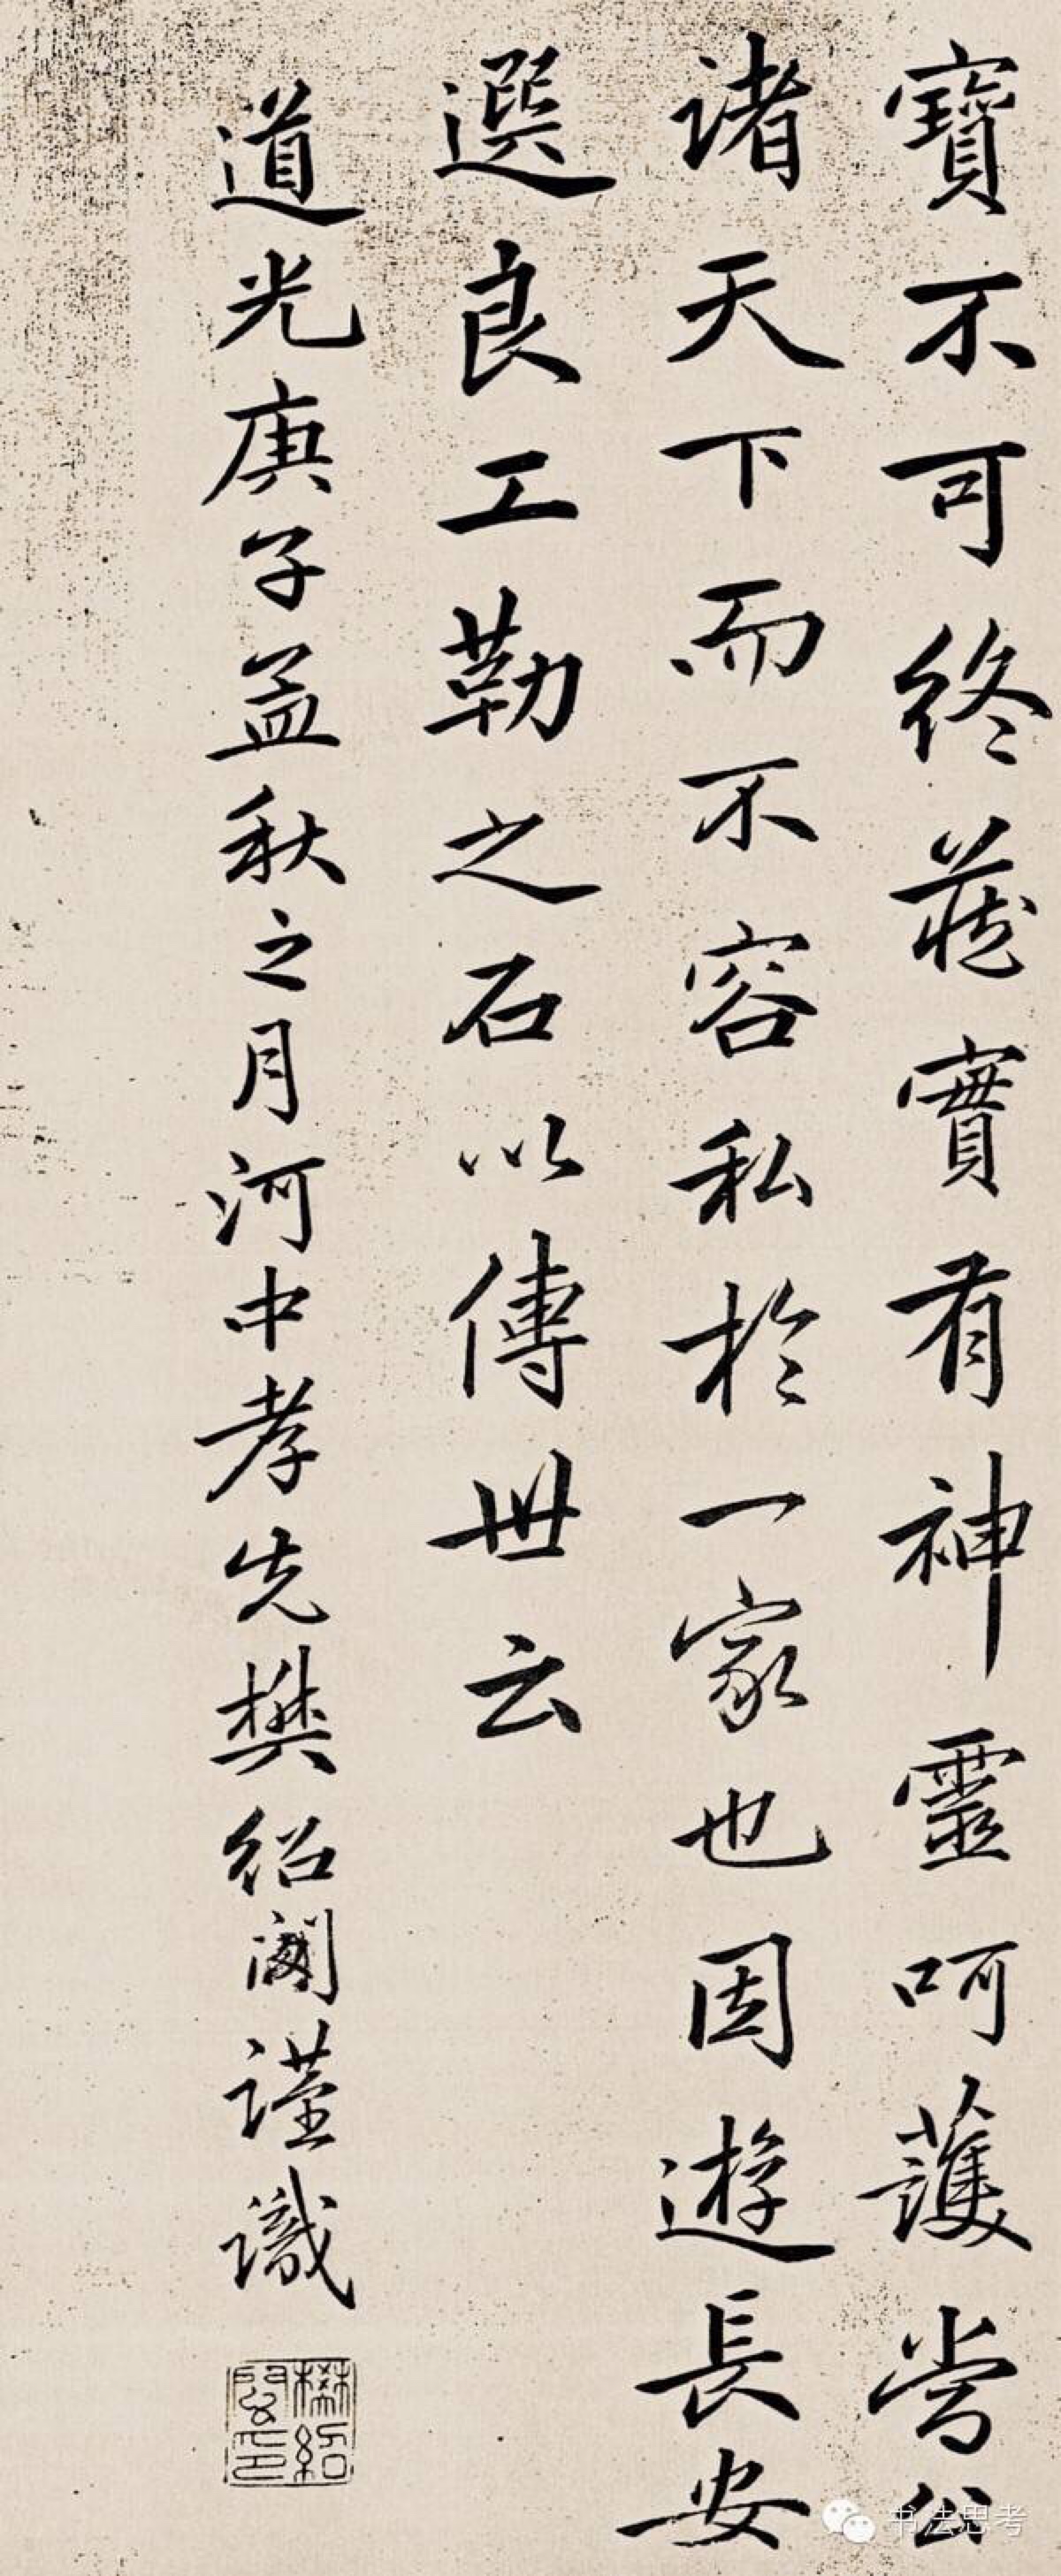 寶不可終藏實有神靈呵護當公
諸天下而不容私於一家也因遊長安
選良工勒之石以傳世云
道光庚子孟秋之月河中孝先樊紹謹識
樊紹印
书法思考